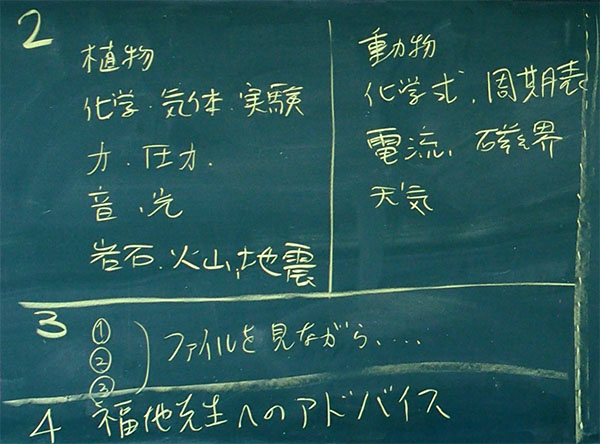 2
植物
化学・気体・実験
力・圧力.
音、光
岩石、火山、地震
動物
化学式、周期表
電流、磁界
天気
3
①
②
③
ファイルを見ながら、....
4 福地先生へのアドバイス